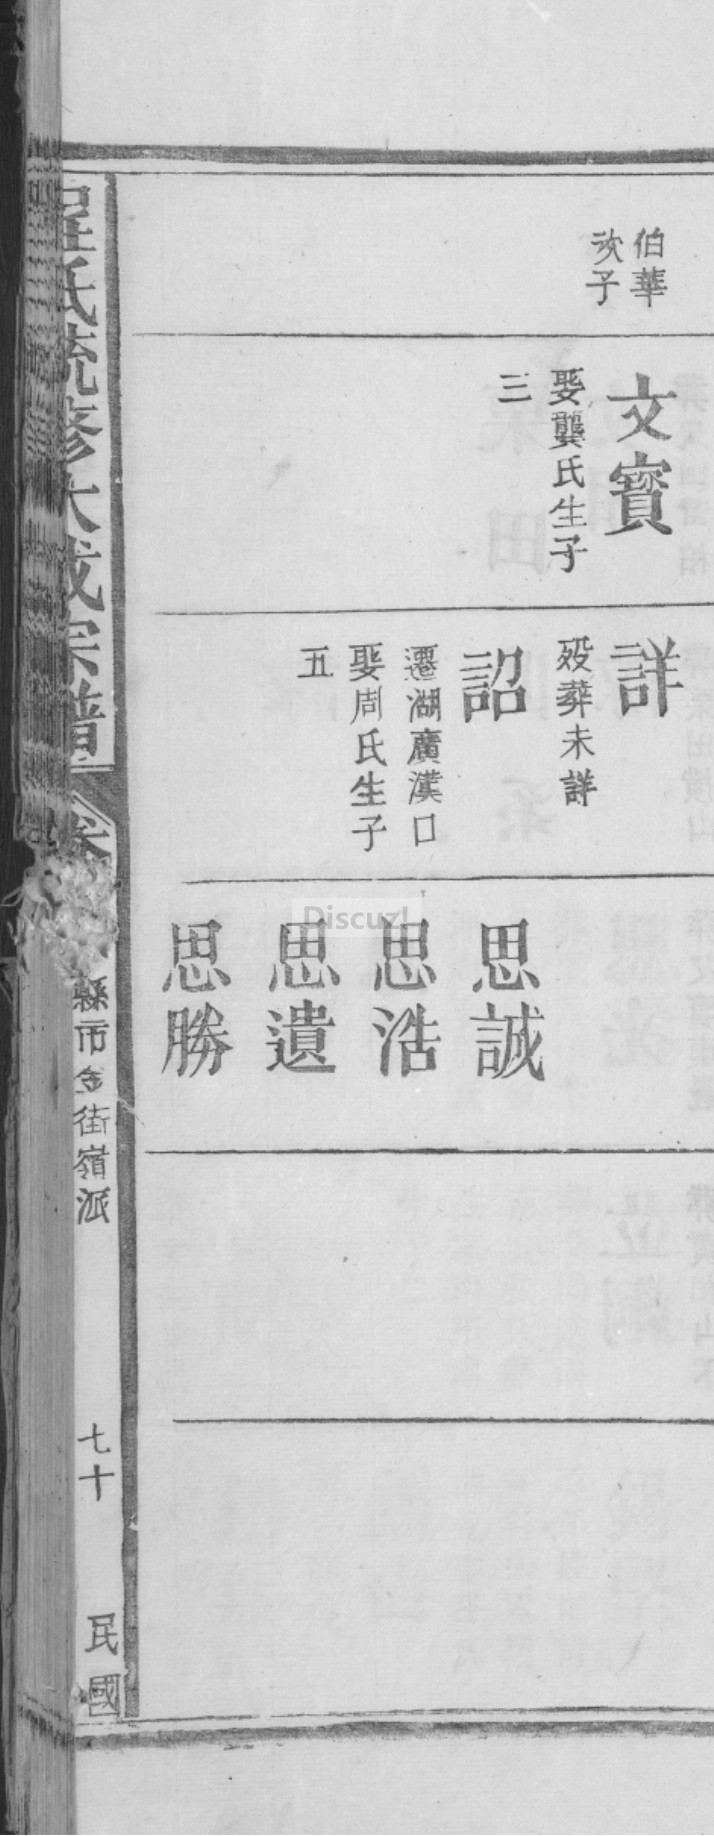 伯華
次子
文寶
娶龔氏生子
三
詳
歿葬未詳
詔
遷湖廣漢口
娶周氏生子
五
思誠
思浩
思遺
思勝
程氏統修大成宗譜
卷
縣市金街嶺派
七十
民國
Discuz!